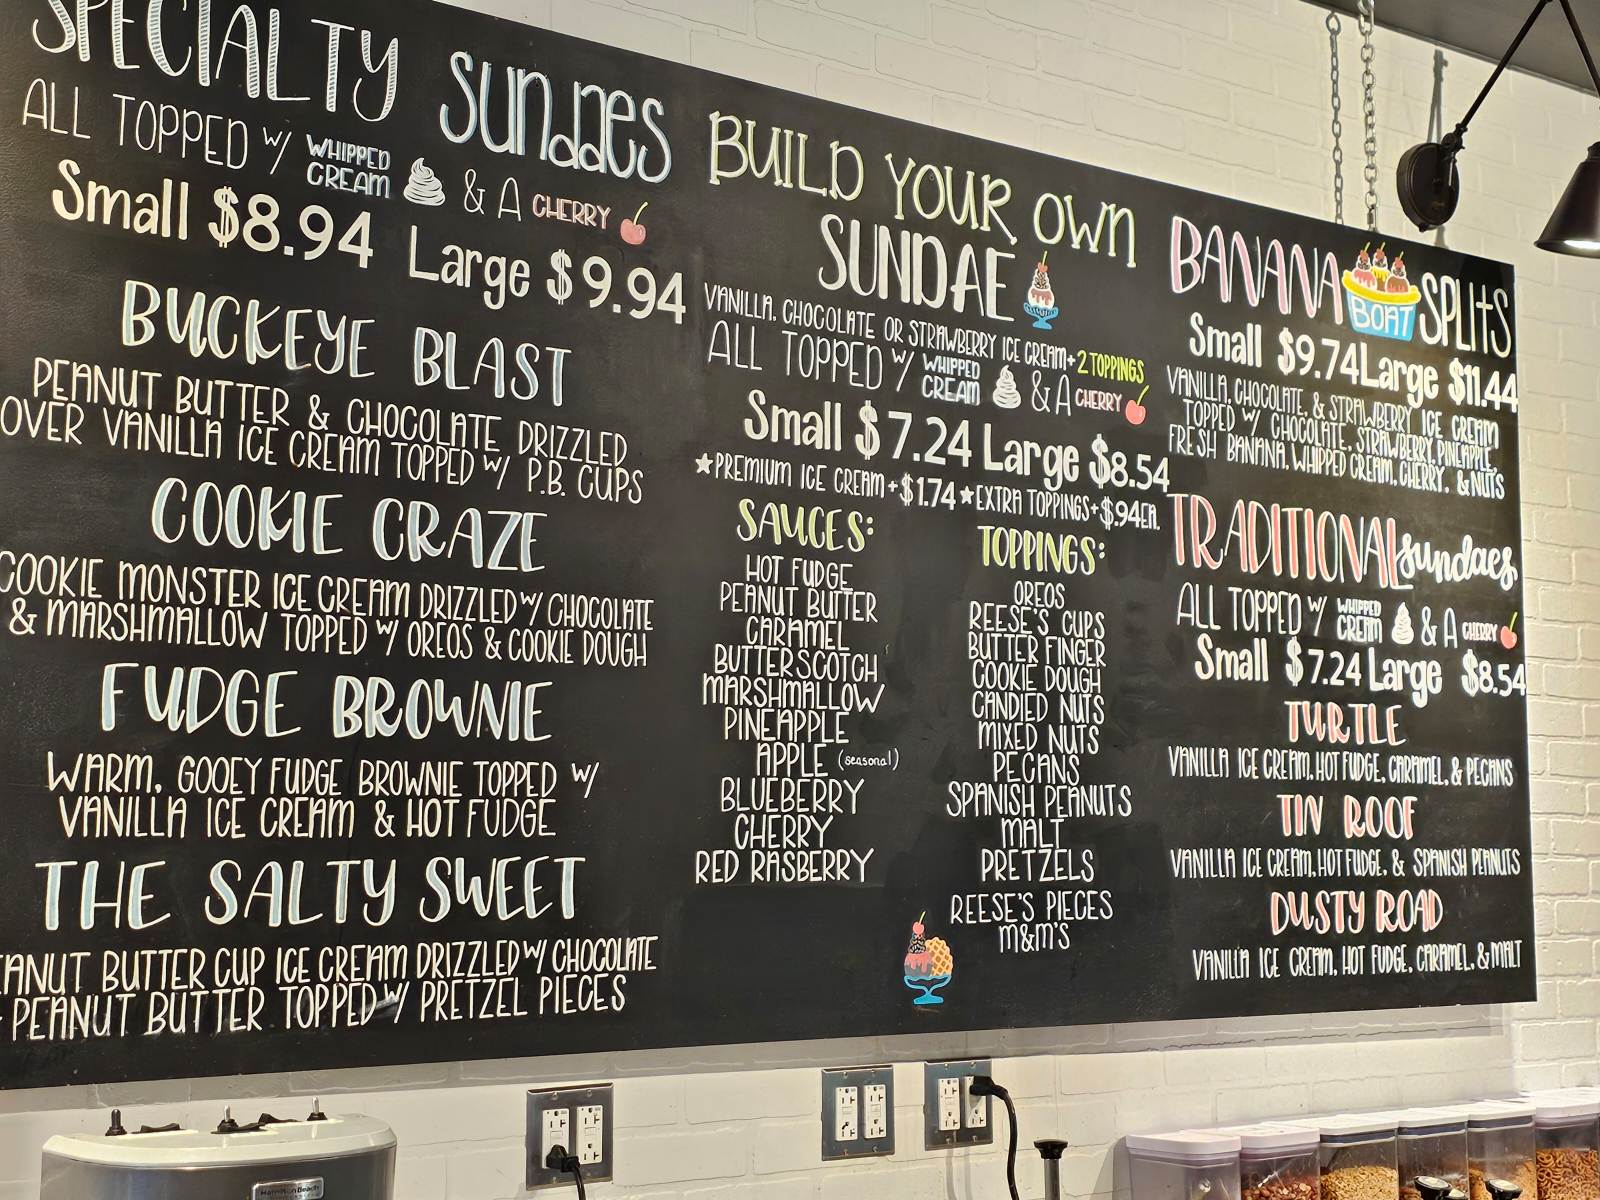 SPECIALTY SUNDAES
ALL TOPPED W/ WHIPPED CREAM & A CHERRY
Small $8.94 Large $9.94
BUCKEYE BLAST
PEANUT BUTTER & CHOCOLATE DRIZZLED
OVER VANILLA ICE CREAM TOPPED W/ P.B. CUPS
COOKIE CRAZE
COOKIE MONSTER ICE CREAM DRIZZLED W/ CHOCOLATE
& MARSHMALLOW TOPPED W/ OREOS & COOKIE DOUGH
FUDGE BROWNIE
WARM, GOOEY FUDGE BROWNIE TOPPED W/
VANILLA ICE CREAM & HOT FUDGE
THE SALTY SWEET
EANUT BUTTER CUP ICE CREAM DRIZZLED W/ CHOCOLATE
PEANUT BUTTER TOPPED W/ PRETZEL PIECES
BUILD YOUR OWN
SUNDAE
VANILLA, CHOCOLATE OR STRAWBERRY ICE CREAM + 2 TOPPINGS
ALL TOPPED W/ WHIPPED CREAM & A CHERRY
Small $7.24 Large $8.54
★PREMIUM ICE CREAM + $1.74 ★EXTRA TOPPINGS + $.94EA.
SAUCES:
HOT FUDGE
PEANUT BUTTER
CARAMEL
BUTTERSCOTCH
MARSHMALLOW
PINEAPPLE
APPLE (seasonal)
BLUEBERRY
CHERRY
RED RASBERRY
TOPPINGS:
OREOS
REESE'S CUPS
BUTTER FINGER
COOKIE DOUGH
CANDIED NUTS
MIXED NUTS
PECANS
SPANISH PEANUTS
MALT
PRETZELS
REESE'S PIECES
M&M'S
BANANA BOAT SPLITS
Small $9.74 Large $11.44
VANILLA, CHOCOLATE, & STRAWBERRY ICE CREAM
TOPPED W/ CHOCOLATE, STRAWBERRY, PINEAPPLE,
FRESH BANANA, WHIPPED CREAM, CHERRY, & NUTS
TRADITIONAL sundaes
ALL TOPPED W/ WHIPPED CREAM & A CHERRY
Small $7.24 Large $8.54
TURTLE
VANILLA ICE CREAM, HOT FUDGE, CARAMEL, & PECANS
TIN ROOF
VANILLA ICE CREAM, HOT FUDGE, & SPANISH PEANUTS
DUSTY ROAD
VANILLA ICE CREAM, HOT FUDGE, CARAMEL, & MALT
Hamilton Beach